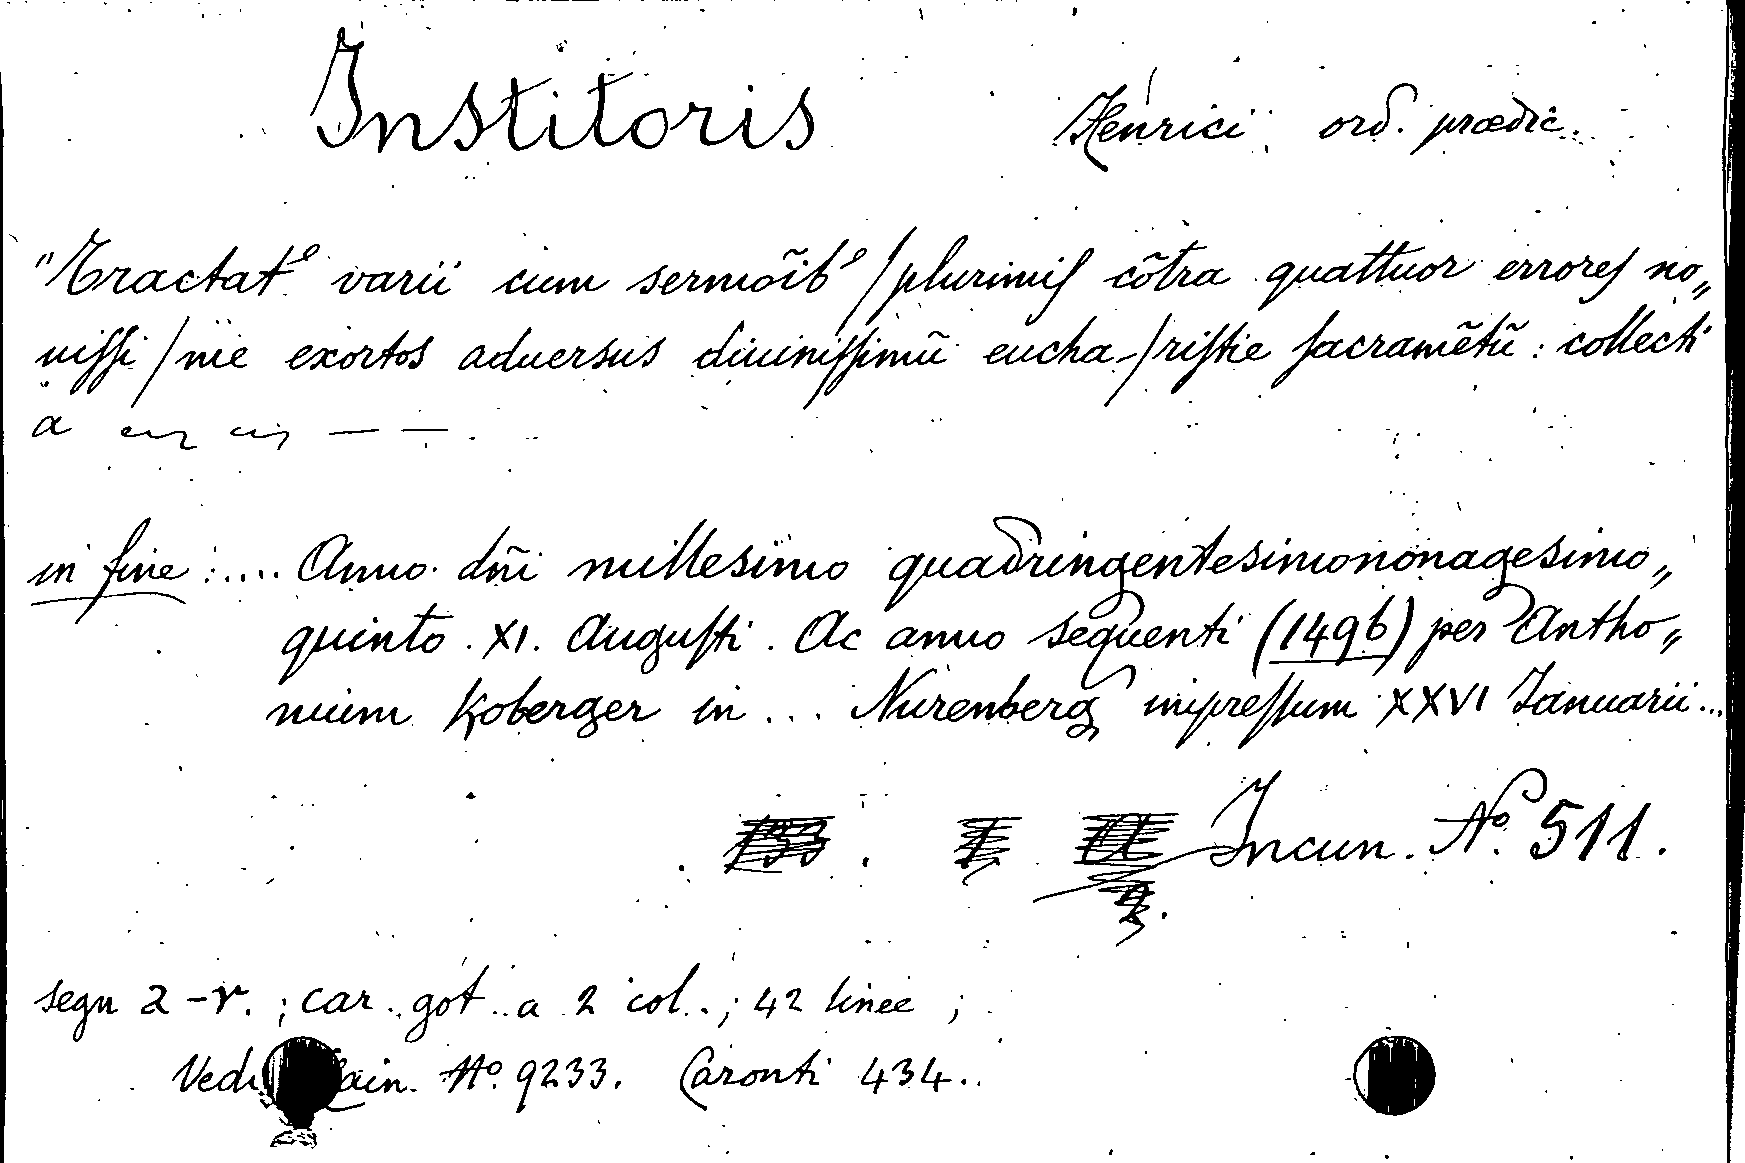 Institoris Henrici ord. prædic.
"Tractatꝰ varii cum sermõibꝰ / plurimiſ cõtra quattuor erroreſ no„
uiſſi / me exortos aduersus diuiniſſimũ eucha-/riſtie ſacramẽtũ : collecti
a
in fine : .... Anno dñi millesimo quadringentesimononagesimo„
quinto . XI. Auguſti . Ac anno sequenti (1496) per Antho„
nium Koberger in ... Nurenberg impreſſum XXVI Ianuarii ...
Incun. Nº 511.
segn a - r. ; car. got. a 2 col. ; 42 linee ;
Vedi ain. Nº. 9233. Caronti 434.